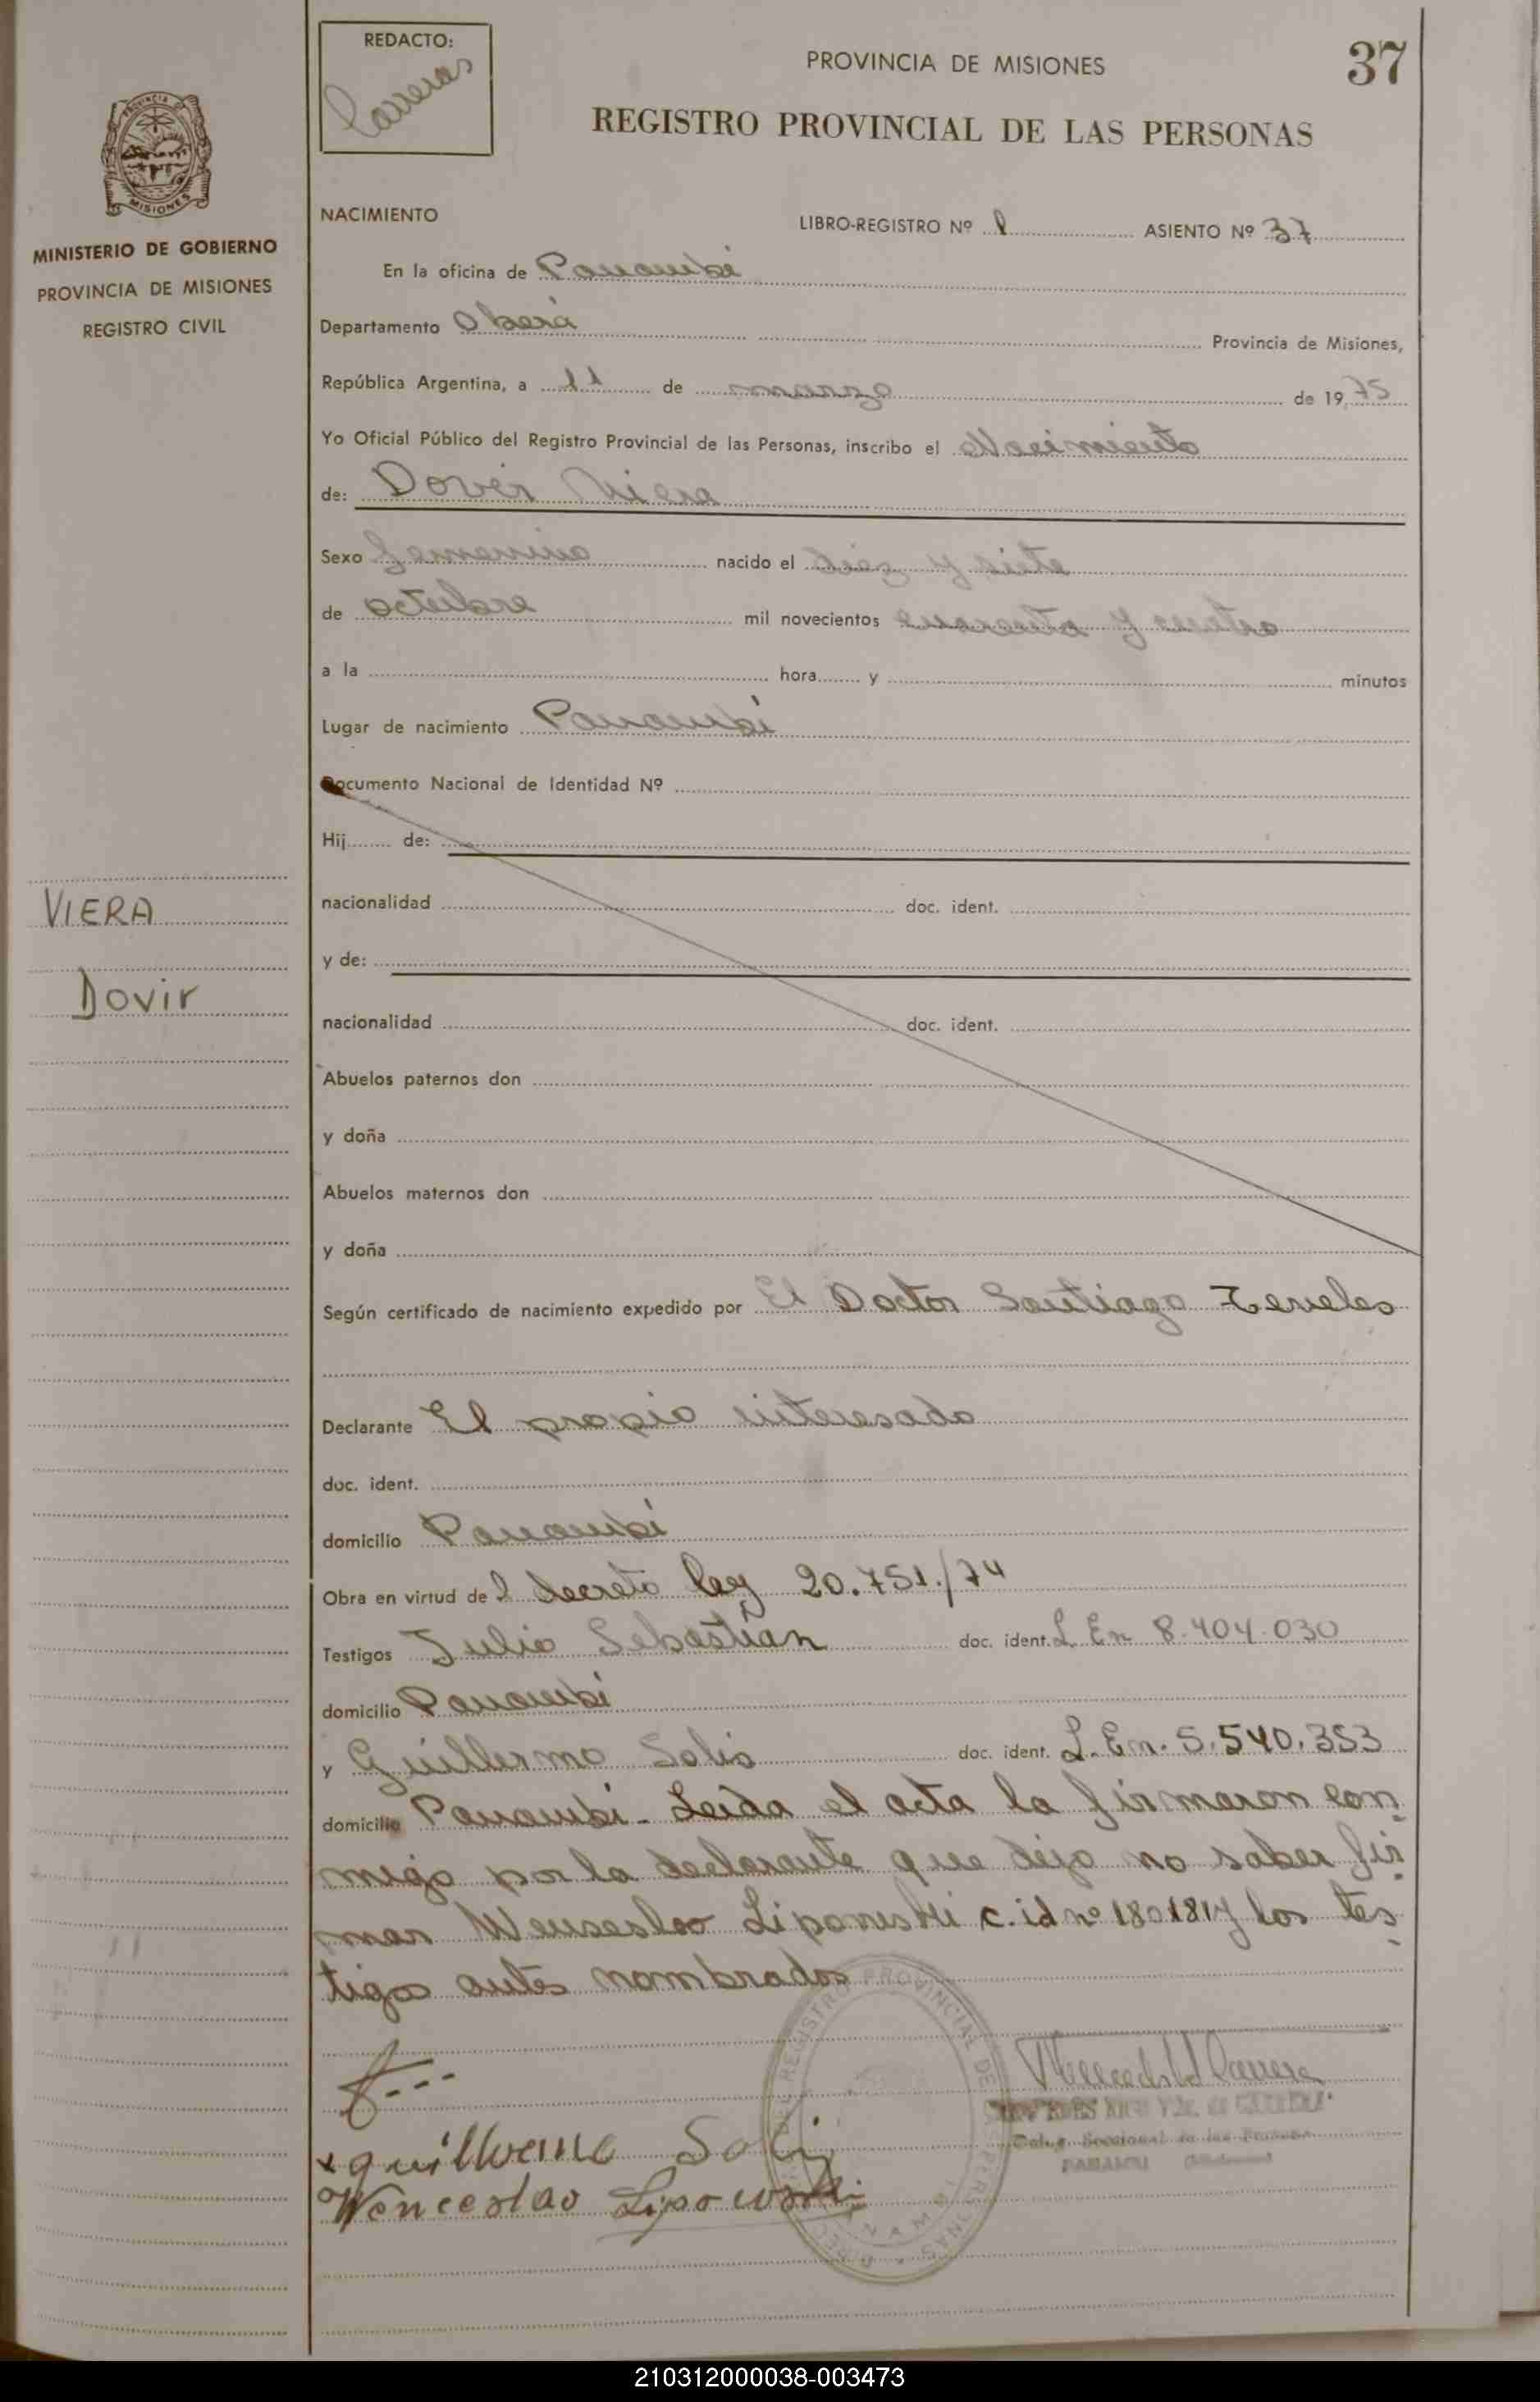 REDACTO:
Carreras
PROVINCIA DE MISIONES
37
REGISTRO PROVINCIAL DE LAS PERSONAS
MISIONES
MINISTERIO DE GOBIERNO
PROVINCIA DE MISIONES
REGISTRO CIVIL
NACIMIENTO LIBRO-REGISTRO Nº 1 ASIENTO Nº 37
En la oficina de Panambí
Departamento Oberá Provincia de Misiones,
República Argentina, a 11 de marzo de 1975
Yo Oficial Público del Registro Provincial de las Personas, inscribo el Nacimiento
de: Dovir Viera
Sexo femenino nacido el diez y siete
de octubre mil novecientos cuarenta y cuatro
a la hora y minutos
Lugar de nacimiento Panambí
Documento Nacional de Identidad Nº
Hij de:
VIERA
nacionalidad doc. ident.
y de:
Dovir
nacionalidad doc. ident.
Abuelos paternos don
y doña
Abuelos maternos don
y doña
Según certificado de nacimiento expedido por El Doctor Santiago
Declarante El propio interesado
doc. ident.
domicilio Panambí
Obra en virtud de l decreto ley 20.751./74
Testigos Julio Sebastian doc. ident. L. En 8.404.030
domicilio Panambí
y Guillermo Solis doc. ident. L. En. 5.540.353
domicilio Panambí - Leida el acta la firmaron con
migo por la declarante que dijo no saber fir
mar Wenseslao Liponski c. id nº 180181 y los tes
tigos antes nombrados
guillermo Soli
Wenceslao
210312000038-003473